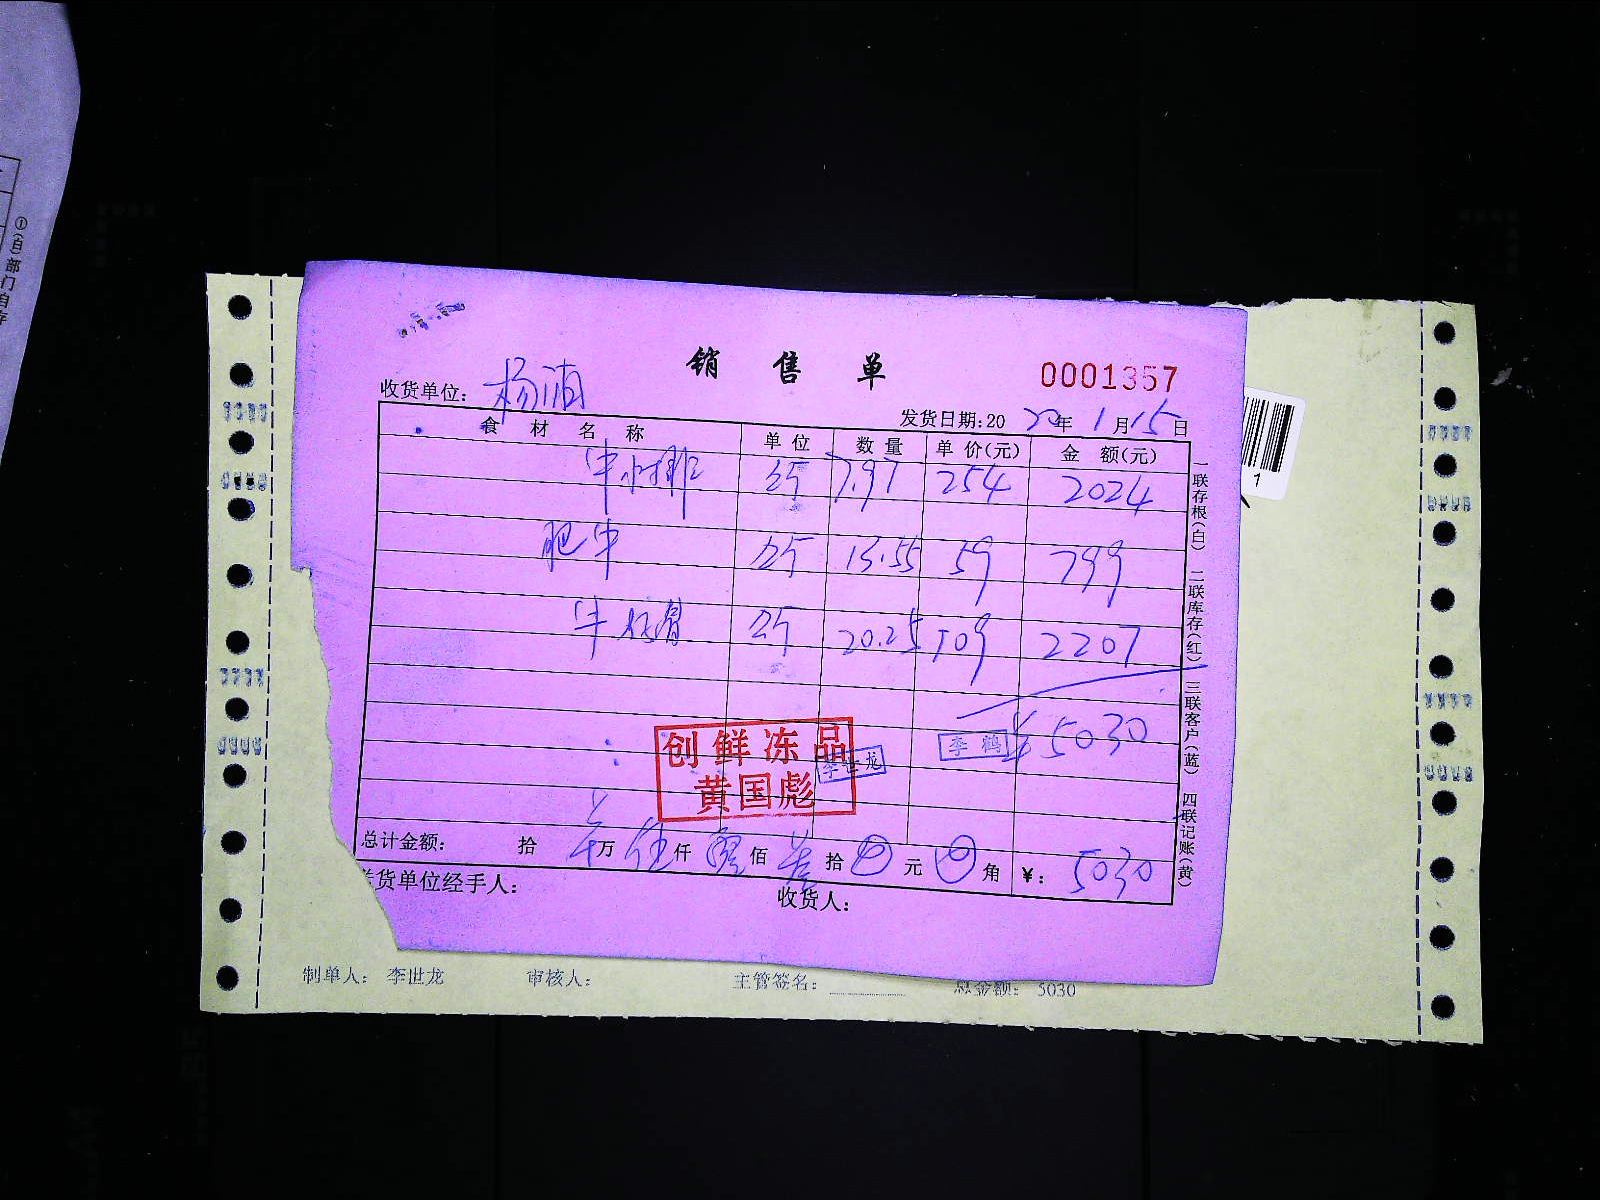 ①(白)部门自存
销 售 单
0001357
收货单位： 杨浦
发货日期:20 20年 1月15日
食 材 名 称 单 位 数 量 单 价(元) 金 额(元)
牛 斤 7.97 254 2024
肥牛 斤 13.55 59 799
牛 斤 20.25 109 2207
¥5030
创鲜冻品
黄国彪
李世龙
李鹤
总计金额： 拾 万 伍仟 零佰 叁拾 0元 0角 ¥： 5030
货单位经手人： 收货人：
一联存根(白) 二联库存(红) 三联客户(蓝) 四联记账(黄)
1
制单人： 李世龙 审核人： 主管签名： 总金额： 5030